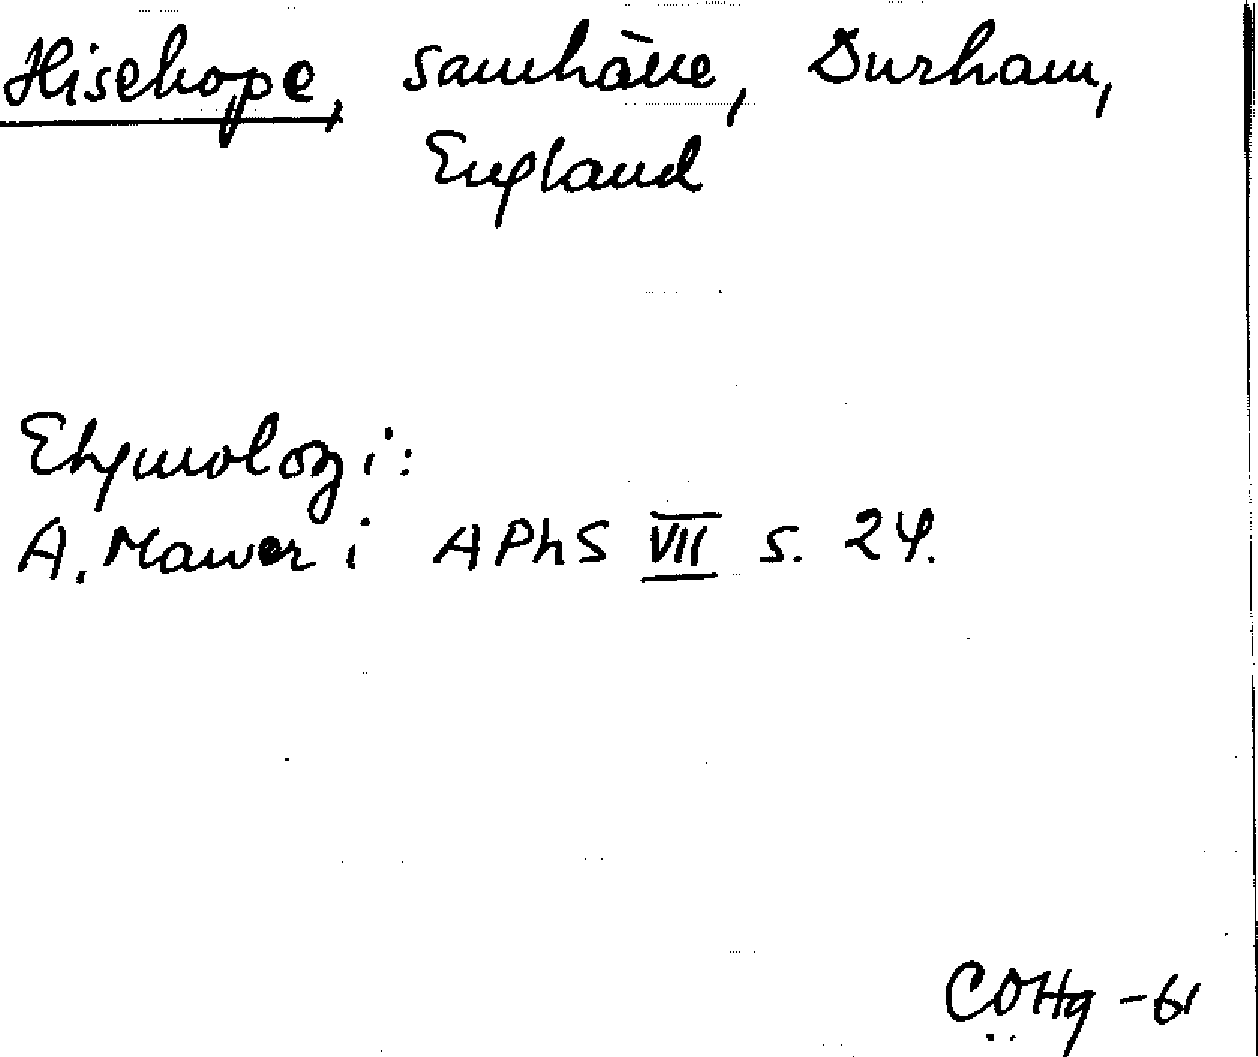 Hisehope, samhäue, Durham,
England
Etymologi:
A. Mawer i APhS VII s. 24.
COHg -61